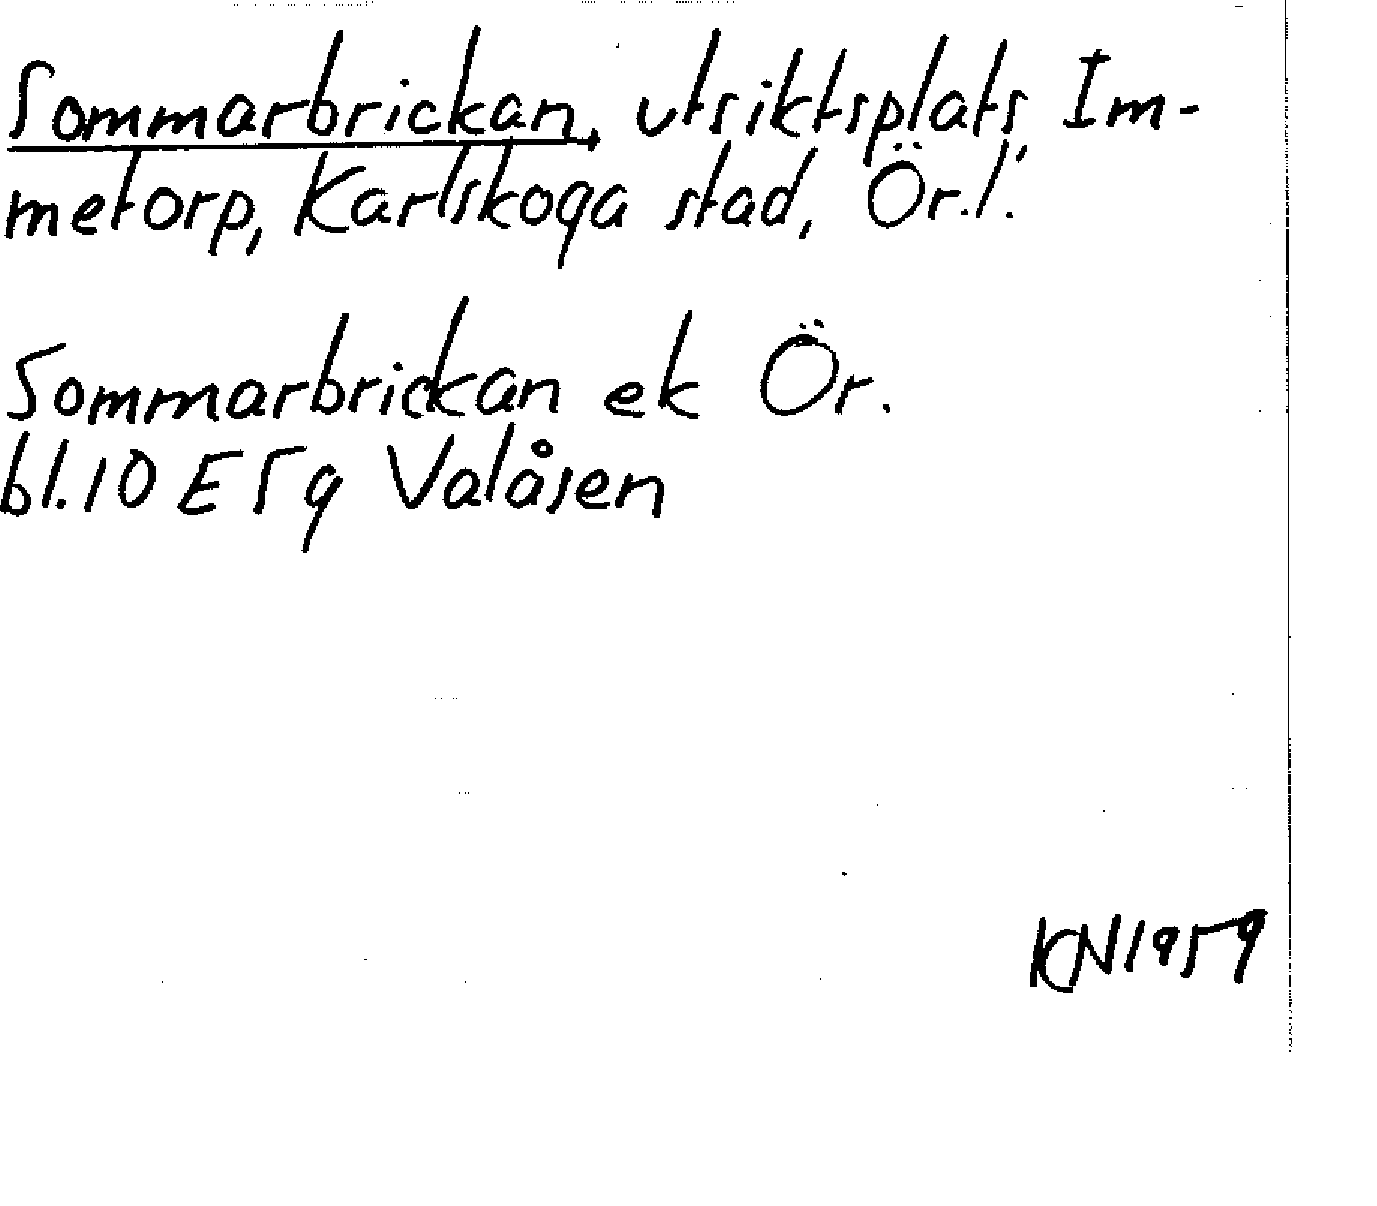 Sommarbrickan, utsiktsplats, Im-
metorp, Karlskoga stad, Ör.l.
Sommarbrickan ek Ör.
bl.10 E 5 g Valåsen
KN1959